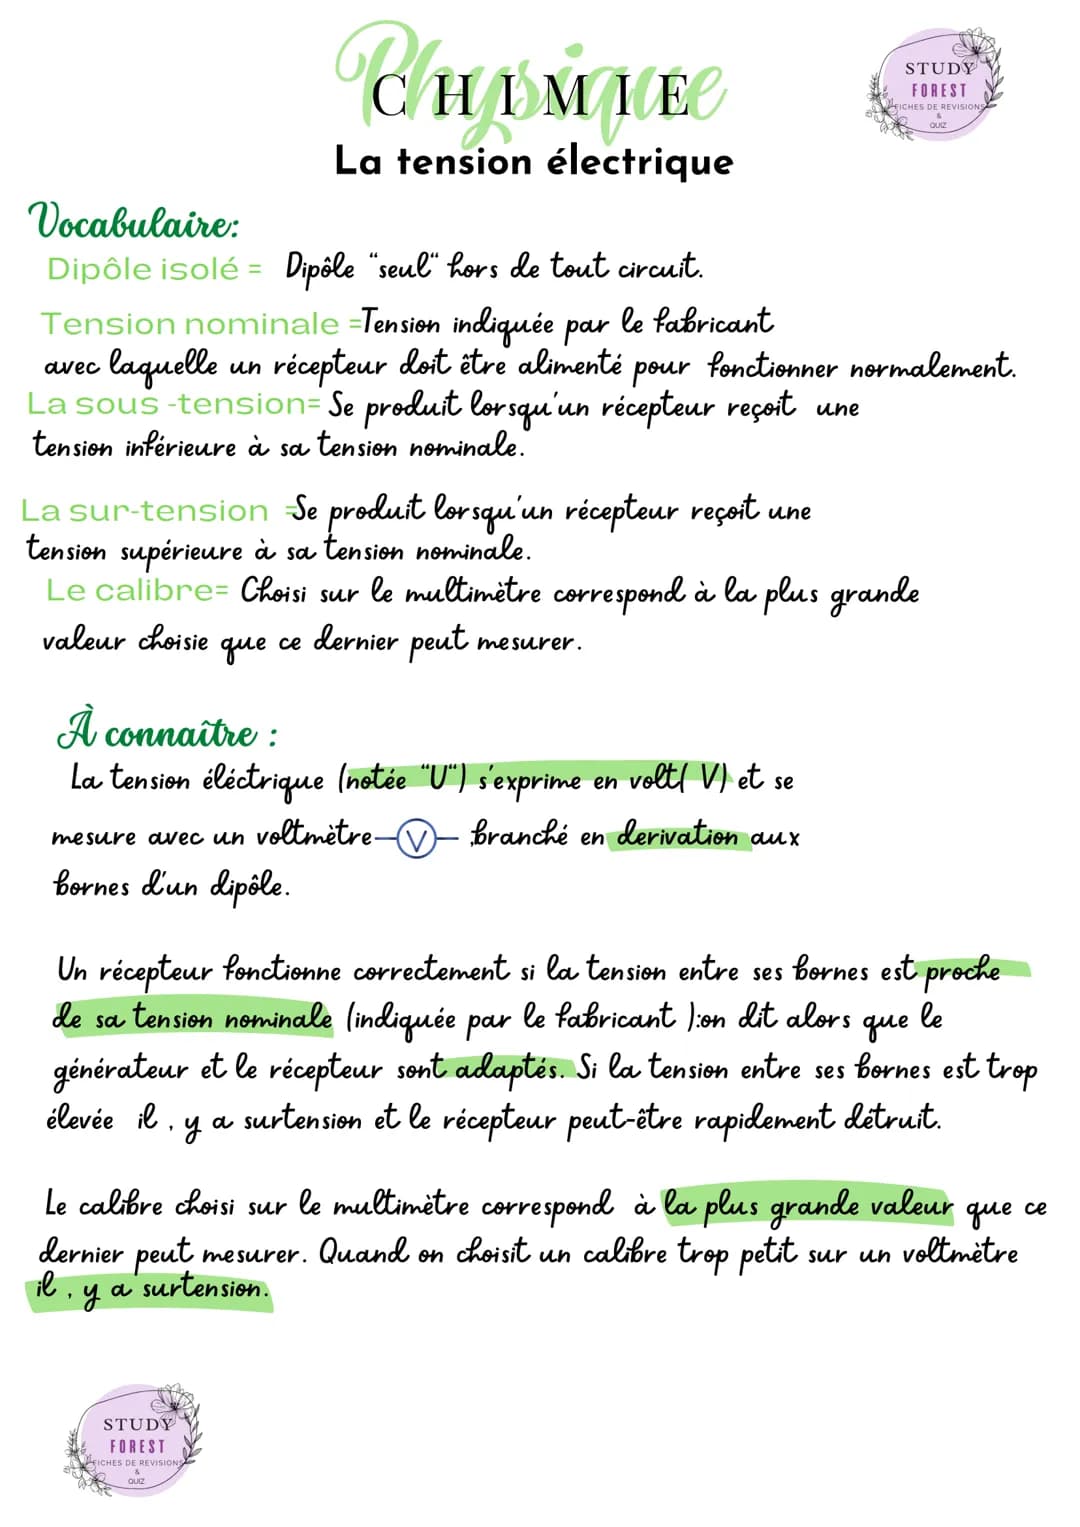 Physique
CHIMIE
STUDY
FOREST
FICHES DE REVISIONS
&
QUIZ
La tension électrique
Vocabulaire:
Dipôle isolé = Dipôle “seul“ hors de tout circuit.
Tension nominale =Tension indiquée par le fabricant
avec laquelle un récepteur doit être alimenté pour fonctionner normalement.
La sous -tension= Se produit lorsqu'un récepteur reçoit une
tension inférieure à sa tension nominale.
La sur-tension =Se produit lorsqu'un récepteur reçoit une
tension supérieure à sa tension nominale.
Le calibre= Choisi sur le multimètre correspond à la plus grande
valeur choisie que ce dernier peut mesurer.
À connaître :
La tension éléctrique (notée “U“) s'exprime en volt( V) et se
mesure avec un voltmètre V ,branché en derivation aux
bornes d'un dipôle.
Un récepteur fonctionne correctement si la tension entre ses bornes est proche
de sa tension nominale (indiquée par le fabricant ):on dit alors que le
générateur et le récepteur sont adaptés. Si la tension entre ses bornes est trop
élevée il , y a surtension et le récepteur peut-être rapidement détruit.
Le calibre choisi sur le multimètre correspond à la plus grande valeur que ce
dernier peut mesurer. Quand on choisit un calibre trop petit sur un voltmètre
il , y a surtension.
STUDY
FOREST
FICHES DE REVISIONS
&
QUIZ